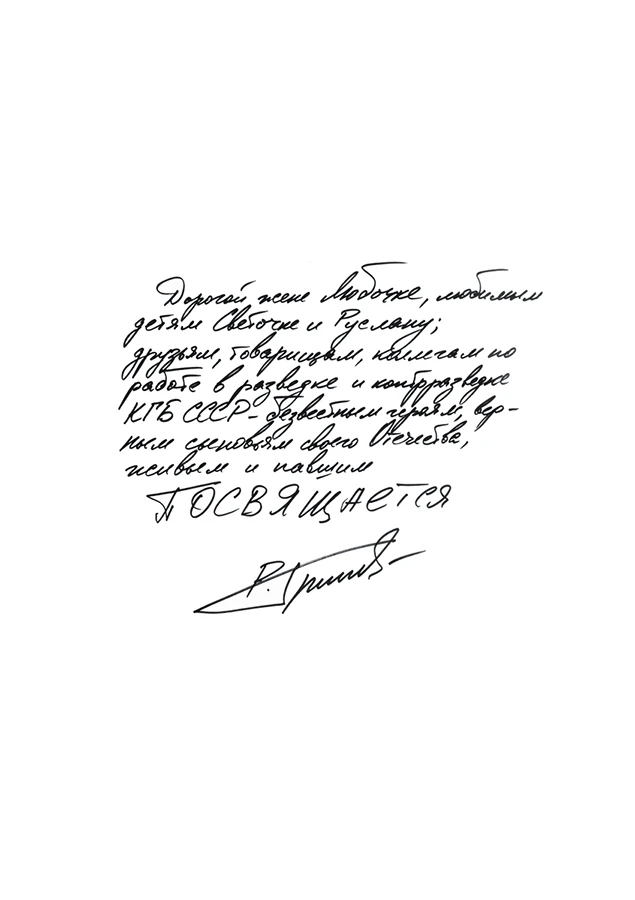 Дорогой жене Любочке, любимым
детям Светочке и Руслану;
друзьям, товарищам, коллегам по
работе в разведке и контрразведке
КГБ СССР – безвестным героям, вер-
ным сыновьям своего Отечества,
живым и павшим
ПОСВЯЩАЕТСЯ
Р.